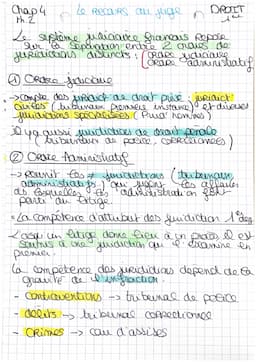 Chap 4 Le recours au juge DROIT
Th 2 1ère
Le système judiciaire français repose
sur la séparation entre 2 ordres de
juridictions distincts : ordre judiciaire
ordre administratif
① Ordre judiciaire
→ compte des juridict de droit privé : juridict°
civiles (tribunaux première instance) et diverses
juridictions spécialisées (Prud'hommes)
Il y a aussi juridictions de droit pénale
(tribunaux de police, correctionnels)
② Ordre Administratif
→ réunit les ≠ juridictions (tribunaux
administratifs) qui jugent les affaires
ds lesquelles les administration font
partie du litige.
• La compétence d'attribut° des juridiction 1° deg
Lorsqu'un litige donne lieu à un procès il est
soumis à une juridiction qui l'examine en
premier.
La compétence des juridictions dépend de la
gravité de l'infraction.
- contraventions → tribunal de police
- délits → tribunal correctionnel
- crimes → cour d'assises